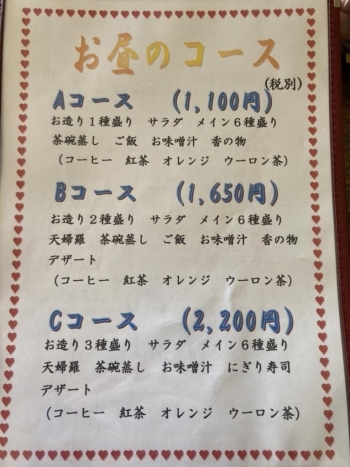 お昼のコース
(税別)
Aコース (1,100円)
お造り1種盛り サラダ メイン6種盛り
茶碗蒸し ご飯 お味噌汁 香の物
(コーヒー 紅茶 オレンジ ウーロン茶)
Bコース (1,650円)
お造り2種盛り サラダ メイン6種盛り
天婦羅 茶碗蒸し ご飯 お味噌汁 香の物
デザート
(コーヒー 紅茶 オレンジ ウーロン茶)
Cコース (2,200円)
お造り3種盛り サラダ メイン6種盛り
天婦羅 茶碗蒸し お味噌汁 にぎり寿司
デザート
(コーヒー 紅茶 オレンジ ウーロン茶)